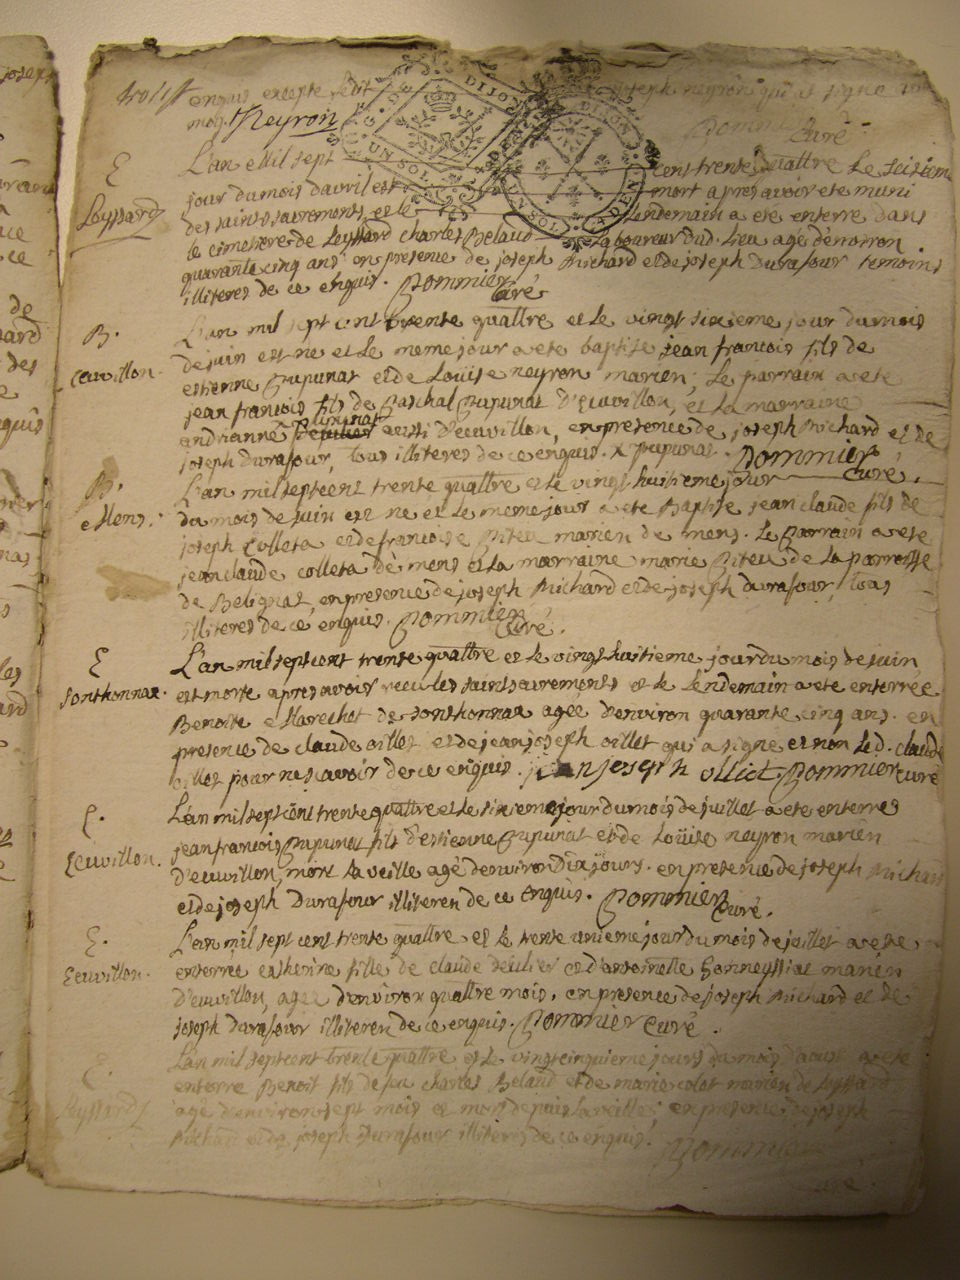 enquis excepté ledit joseph neyron qui a signé
moy. Neyron Dommier Curé
E
L'an Mil sept cent trente quattre Le
Leyssard
jour du mois d'avril est mort apres avoir eté muni
des saints sacrements, et le Lendemain a eté enterré dans
le cimetiere de Leyssard charles Belaud Laboureur dud. Lieu agé d'environ
quarante cinq ans en presence de joseph Michard et de joseph Durafour temoins
illiteres de ce enquis. Dommier Curé
B.
L'an mil sept cent trente quattre et le vingt sixieme jour du mois
Ceuvillon.
de juin est né et le meme jour a eté baptisé jean francois fils de
estienne Pupunat et de Louise neyron mariéz; Le parrain a eté
jean francois fils de Paschal Pupunat d'Ecuvillon, et la marraine
andrianne Pupunat aussi d'ecuvillon, en presence de joseph Michard et de
joseph Durafour, tous illiteres de ce enquis. Dommier Curé.
B.
L'an mil sept cent trente quattre et le vingt huitieme jour
Mens.
du mois de juin est né et le meme jour a eté Baptisé jean claude fils de
joseph Colleta et de francoise Piteu mariéz de mens. Le Parrain a eté
jean claude colleta de mens et la marraine marie Piteu de la parroisse
de Belignat, en presence de joseph Michard et de joseph durafour, tous
illiteres de ce enquis. Dommier Curé.
E
L'an mil sept cent trente quattre et le vingt huitieme jour du mois de juin
Sonthonnax.
est morte apres avoir receu les saints sacrements et le Lendemain a eté enterrée
Benoite Marechot de sonthonnax agée d'environ quarante cinq ans. en
presence de claude oillet et de jean joseph oillet qui a signé et non le d. claude
oillet pour ne scavoir de ce enquis. jean joseph olliet. Dommier curé
E.
L'an mil sept cent trente quattre et le sixieme jour du mois de juillet a eté enterré
Ecuvillon.
jean francois Pupunat fils d'estienne Pupunat et de Louise neyron mariéz
d'ecuvillon, mort la veille agé d'environ dix jours. en presence de joseph Michard
et de joseph Durafour illiterez de ce enquis. Dommier Curé.
E.
L'an mil sept cent trente quattre et le trente unieme jour du mois de juillet a eté
Ecuvillon.
enterrée catherine fille de claude et d'antoinelle mariéz
d'ecuvillon, agée d'environ quattre mois, en presence de joseph Michard et de
joseph Durafour illiterez de ce enquis. Dommier Curé.
E.
L'an mil sept cent trente quattre et le vingt cinquieme jour du mois d'aout a eté
enterré Benoit fils de feu charles Belaud et de marie colot mariéz de Leyssard
Leyssard
agé d'environ sept mois et mort depuis la veille, en presence de joseph
Michard et de joseph Durafour illiteres de ce enquis. Dommier
curé.
DIJON
UN SOL